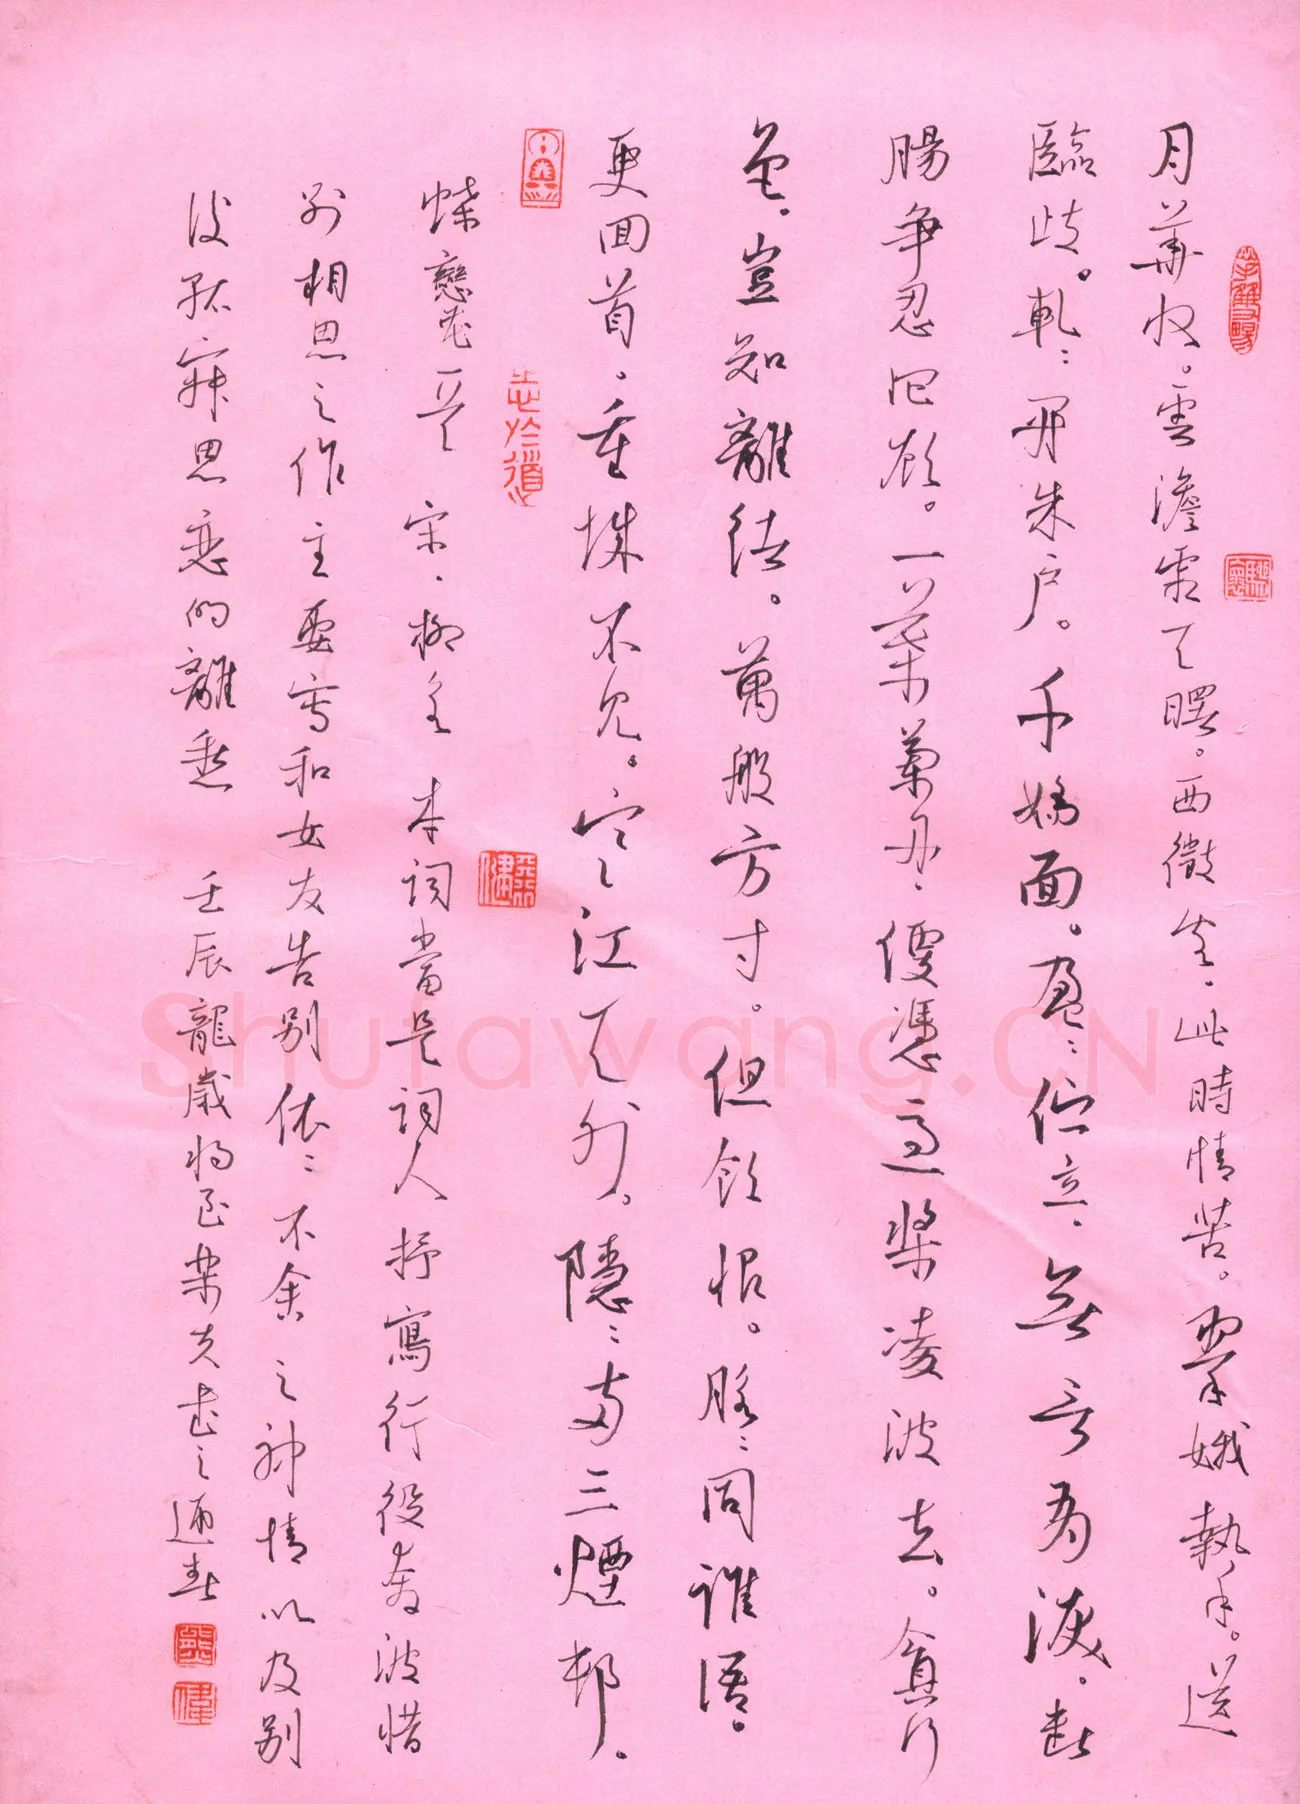 月華收。雲澹霜天曙。西微客、此時情苦。翠娥執手。送
臨歧。軋々開朱戶。千嬌面。盈々伫立、無言有淚。斷
腸爭忍回顧。一葉蘭舟、便憑急槳凌波去。貪行
色、豈知離緒。萬般方寸。但飲恨。脉々同誰語。
更回首。重城不見。寒江天外。隱々兩三煙邨。
志於道
蝶戀花 宋、柳永 本詞當是詞人抒寫行役奔波惜
別相思之作主要寫和女友告別依々不舍之神情以及別
後孤寂思恋的離愁 壬辰龍歲將至 書之迎春
Shufawang.CN